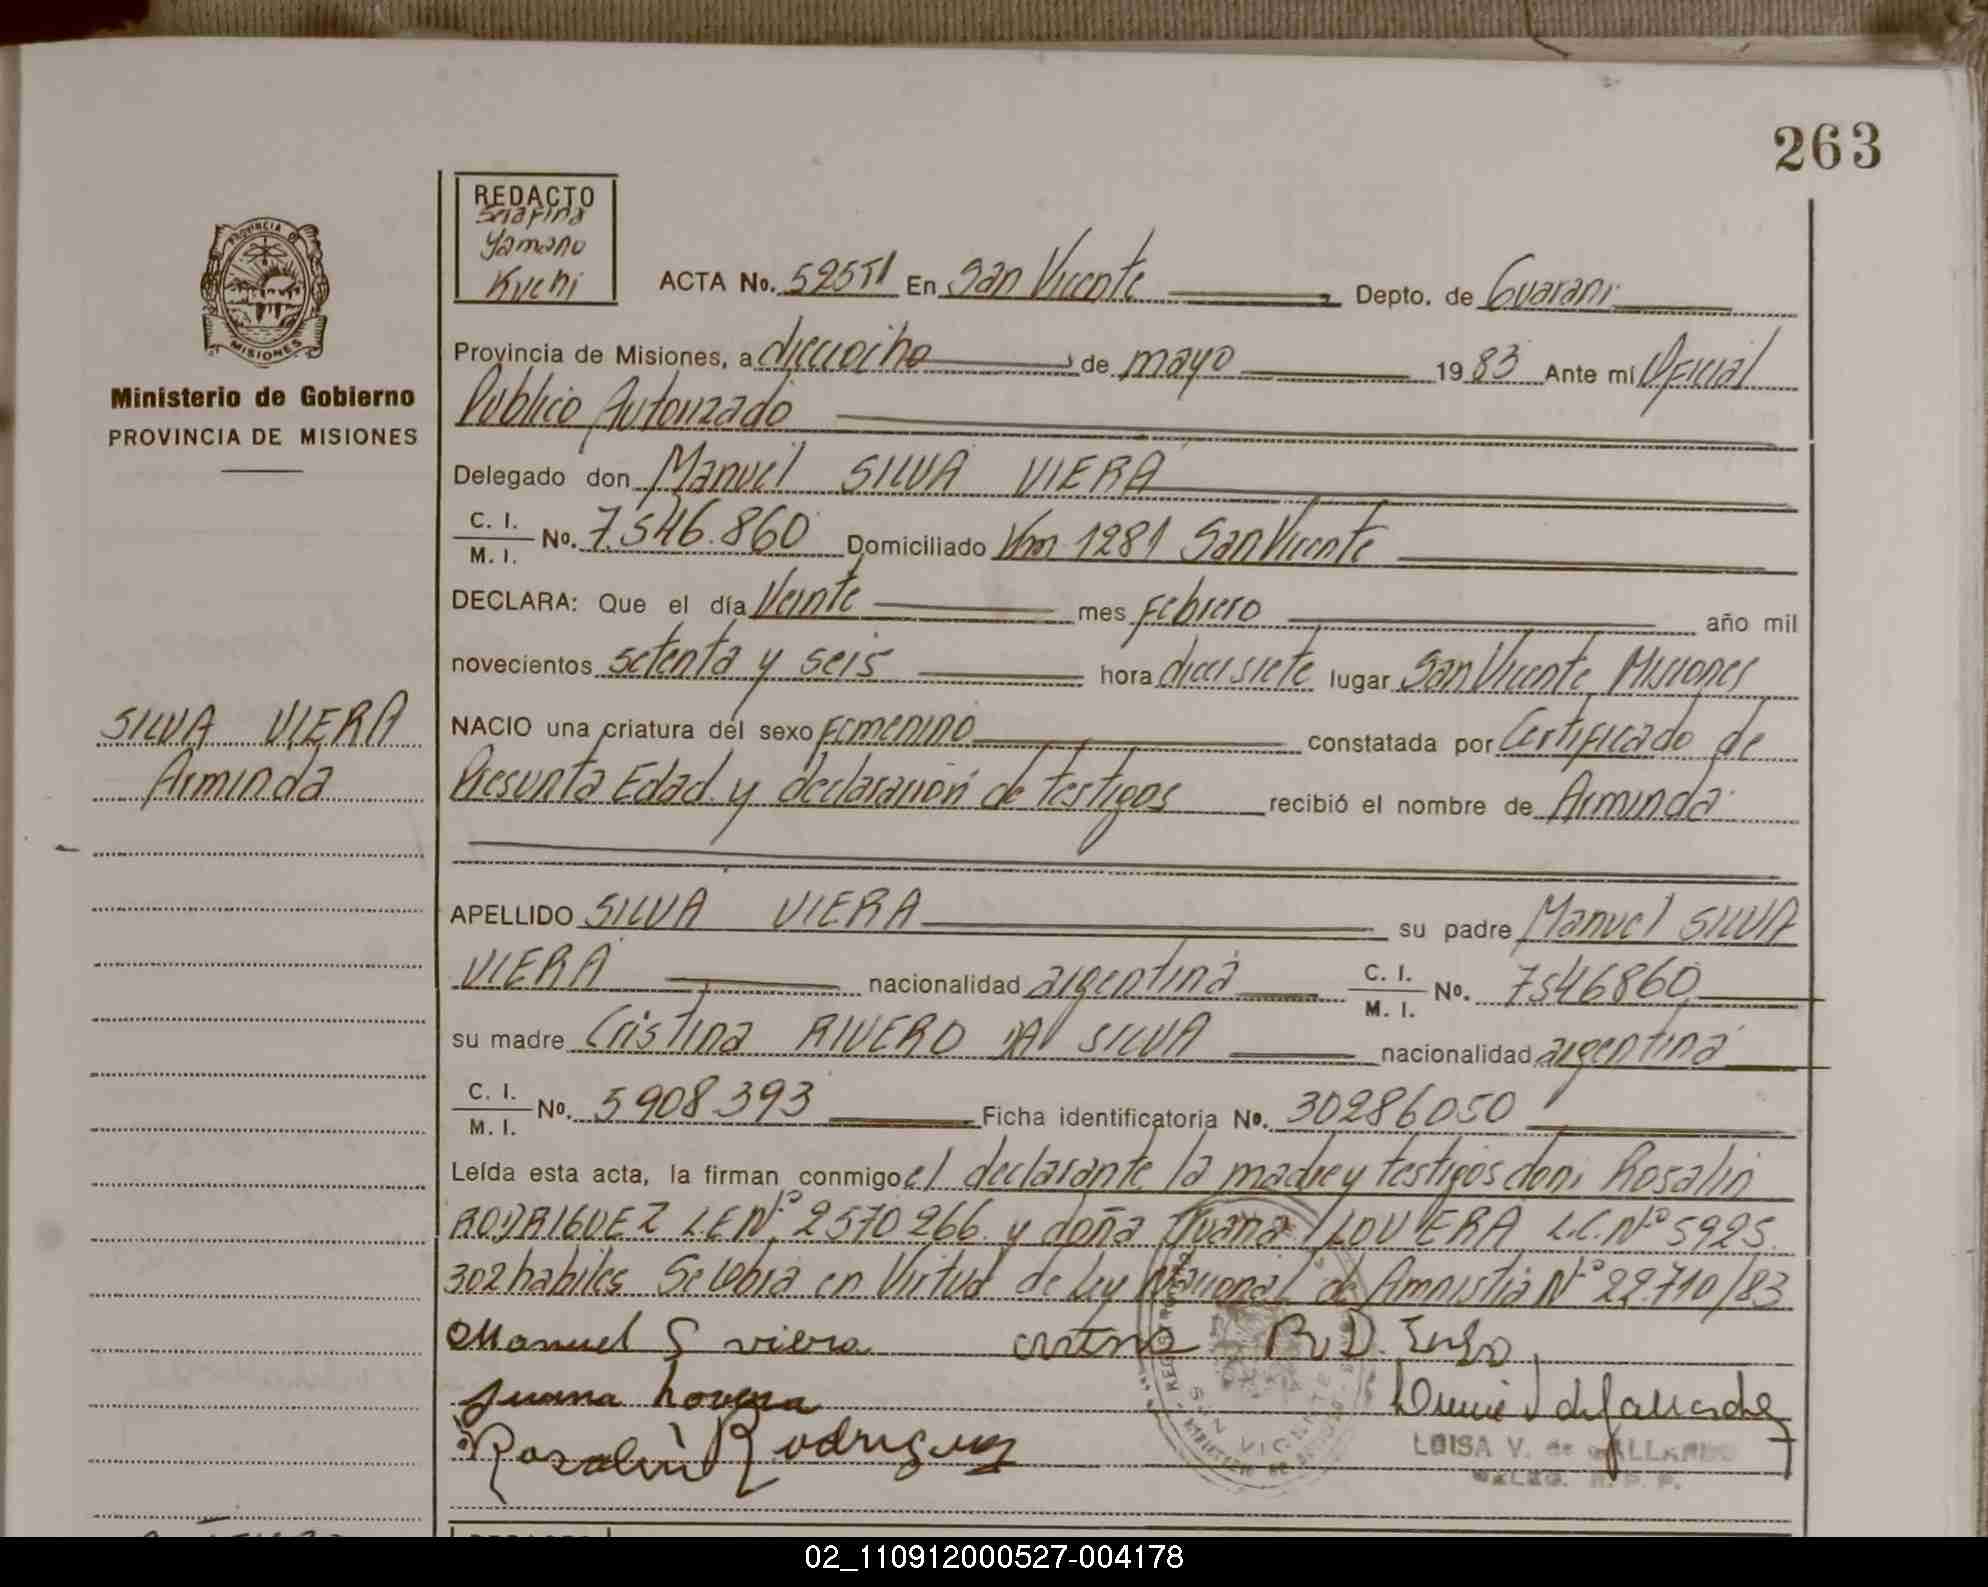 263
REDACTO
Serafina
Yamano
Kuchi
PROVINCIA DE
MISIONES
Ministerio de Gobierno
PROVINCIA DE MISIONES
ACTA No. 525T1 En San Vicente Depto. de Guarani
Provincia de Misiones, a dieciocho de mayo 1983 Ante mi Oficial
Publico Autorizado
Delegado don Manuel SILVA VIERA
C. I. / M. I. No. 7.546.860 Domiciliado Km 1281 San Vicente
DECLARA: Que el día Veinte mes Febrero año mil
novecientos setenta y seis hora diecisiete lugar San Vicente Misiones
SILVA VIERA
Arminda
NACIO una criatura del sexo Femenino constatada por Certificado de
Presunta Edad y declaración de testigos recibió el nombre de Arminda
APELLIDO SILVA VIERA su padre Manuel SILVA
VIERA nacionalidad argentina C. I. / M. I. No. 7546860
su madre Cristina RIVERO DA SILVA nacionalidad argentina
C. I. / M. I. No. 5908393 Ficha identificatoria No. 30286050
Leída esta acta, la firman conmigo el declarante la madre y testigos don: Rosalin
RODRIGUEZ L.E Nº 2570266 y doña Juana LOVERA L.C. Nº 5925
302 habiles Se labra en Virtud de Ley Nacional de Amnistia Nº 22.710/83
Manuel S viera R.D.
Juana Lovera
Rosalin Rodriguez
SAN VICENTE
LUISA V. de GALLARDO
REDACTO
02_110912000527-004178